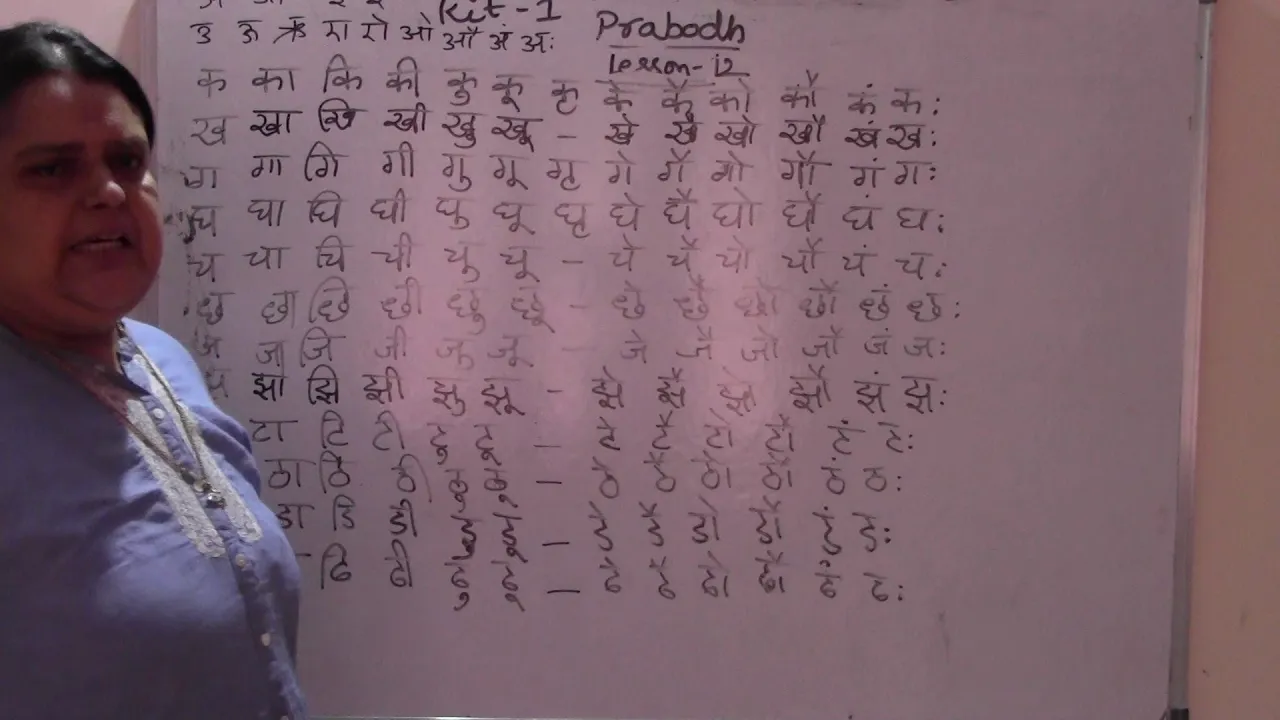 Kit-1
उ ऊ ऋ रा रो ओ औ अं अः
Prabodh
Lesson-12
क का कि की कु कू कृ के कै को कौ कं कः
ख खा खि खी खु खू – खे खै खो खौ खं खः
ग गा गि गी गु गू गृ गे गै गो गौ गं गः
घ घा घि घी घु घू घृ घे घै घो घौ घं घः
च चा चि ची चु चू – चे चै चो चौ चं चः
छ छा छि छी छु छू – छे छै छो छौ छं छः
ज जा जि जी जु जू – जे जै जो जौ जं जः
झा झि झी झु झू – झे झै झो झौ झं झः
टा टि टी टु टू – टे टै टो टौ टं टः
ठा ठि ठी ठु ठू – ठे ठै ठो ठौ ठं ठः
डा डि डी डु डू – डे डै डो डौ डं डः
ढि ढी ढु ढू – ढे ढै ढो ढौ ढं ढः